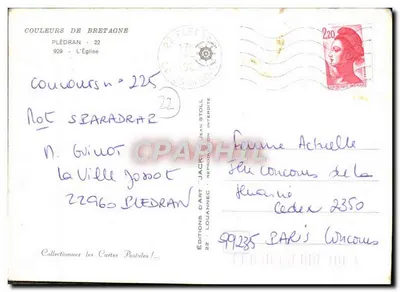 COULEURS DE BRETAGNE
PLÉDRAN - 22
929 - L'Église
Concours n° 225
22
Mot SPARADRAP
M. Guinot
La Ville Jossot
22960 PLEDRAN
Collectionnez les Cartes Postales !...
EDITIONS D'ART JACK
22 - LOUANNEC
JEAN STOLL
REPRODUCTION INTERDITE
2,20
CPAPHIL
Femme Actuelle
Jeu Concours de la
Semaine
Cedex 2350
99235 PARIS Concours